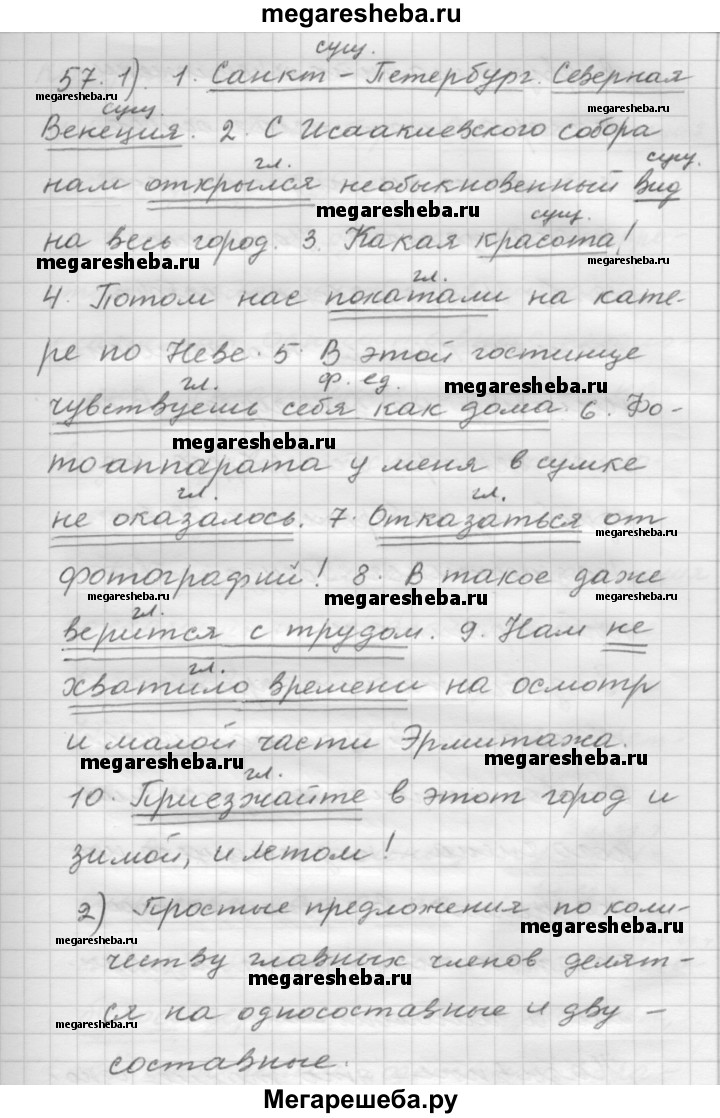 megaresheba.ru
сущ.
57. 1). 1. Санкт - Петербург. Северная
megaresheba.ru
megaresheba.ru
сущ.
Венеция. 2. С Исаакиевского собора
гл. сущ.
нам открылся необыкновенный вид
megaresheba.ru
сущ.
на весь город. 3. Какая красота!
megaresheba.ru
megaresheba.ru
гл.
4. Потом нас покатали на кате-
ре по Неве. 5. В этой гостинице
гл. ф. ед.
megaresheba.ru
чувствуешь себя как дома. 6. Фо-
megaresheba.ru
тоаппарата у меня в сумке
гл. гл.
не оказалось. 7. Отказаться от
фотографий! 8. В такое даже
megaresheba.ru
megaresheba.ru
гл.
верится с трудом. 9. Нам не
гл.
хватило времени на осмотр
и малой части Эрмитажа.
megaresheba.ru
megaresheba.ru
гл.
10. Приезжайте в этот город и
зимой, и летом!
2) Простые предложения по коли-
megaresheba.ru
честву главных членов делят-
megaresheba.ru
ся на односоставные и дву -
megaresheba.ru
megaresheba.ru
составные.
Мегарешеба.ру